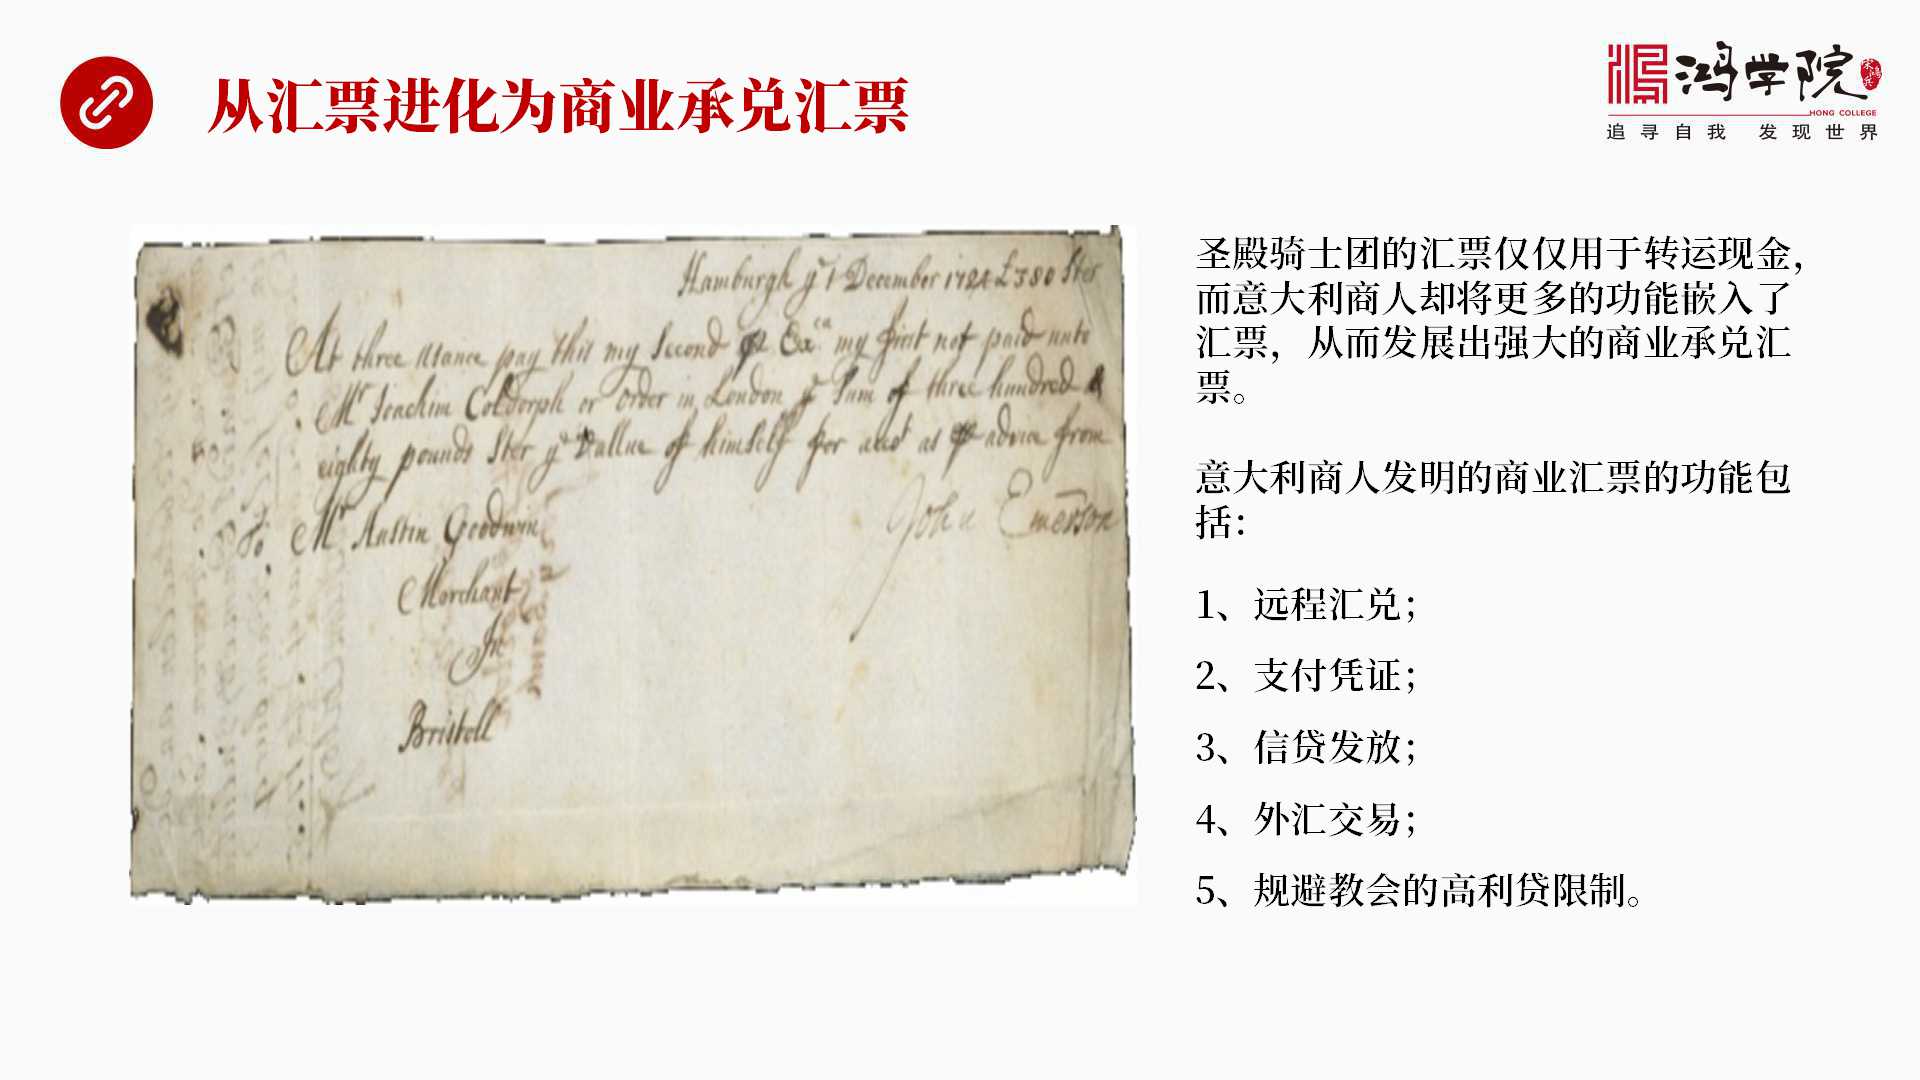 从汇票进化为商业承兑汇票
鸿学院
宋鸿兵
HONG COLLEGE
追寻自我 发现世界
Hamburgh yͤ 1 December 1724 £380 Ster
At three Usance pay this my Second of Exᶜᵃ my first not paid unto
Mʳ Joachim Coldorph or order in London yͤ Sum of three hundred &
eighty pounds Ster yͤ Vallue of himself for accoᵗ as advice from
John Emerson
To Mʳ Austin Goodwin
Merchant
In
Bristoll
圣殿骑士团的汇票仅仅用于转运现金，
而意大利商人却将更多的功能嵌入了
汇票，从而发展出强大的商业承兑汇
票。
意大利商人发明的商业汇票的功能包
括：
1、远程汇兑；
2、支付凭证；
3、信贷发放；
4、外汇交易；
5、规避教会的高利贷限制。